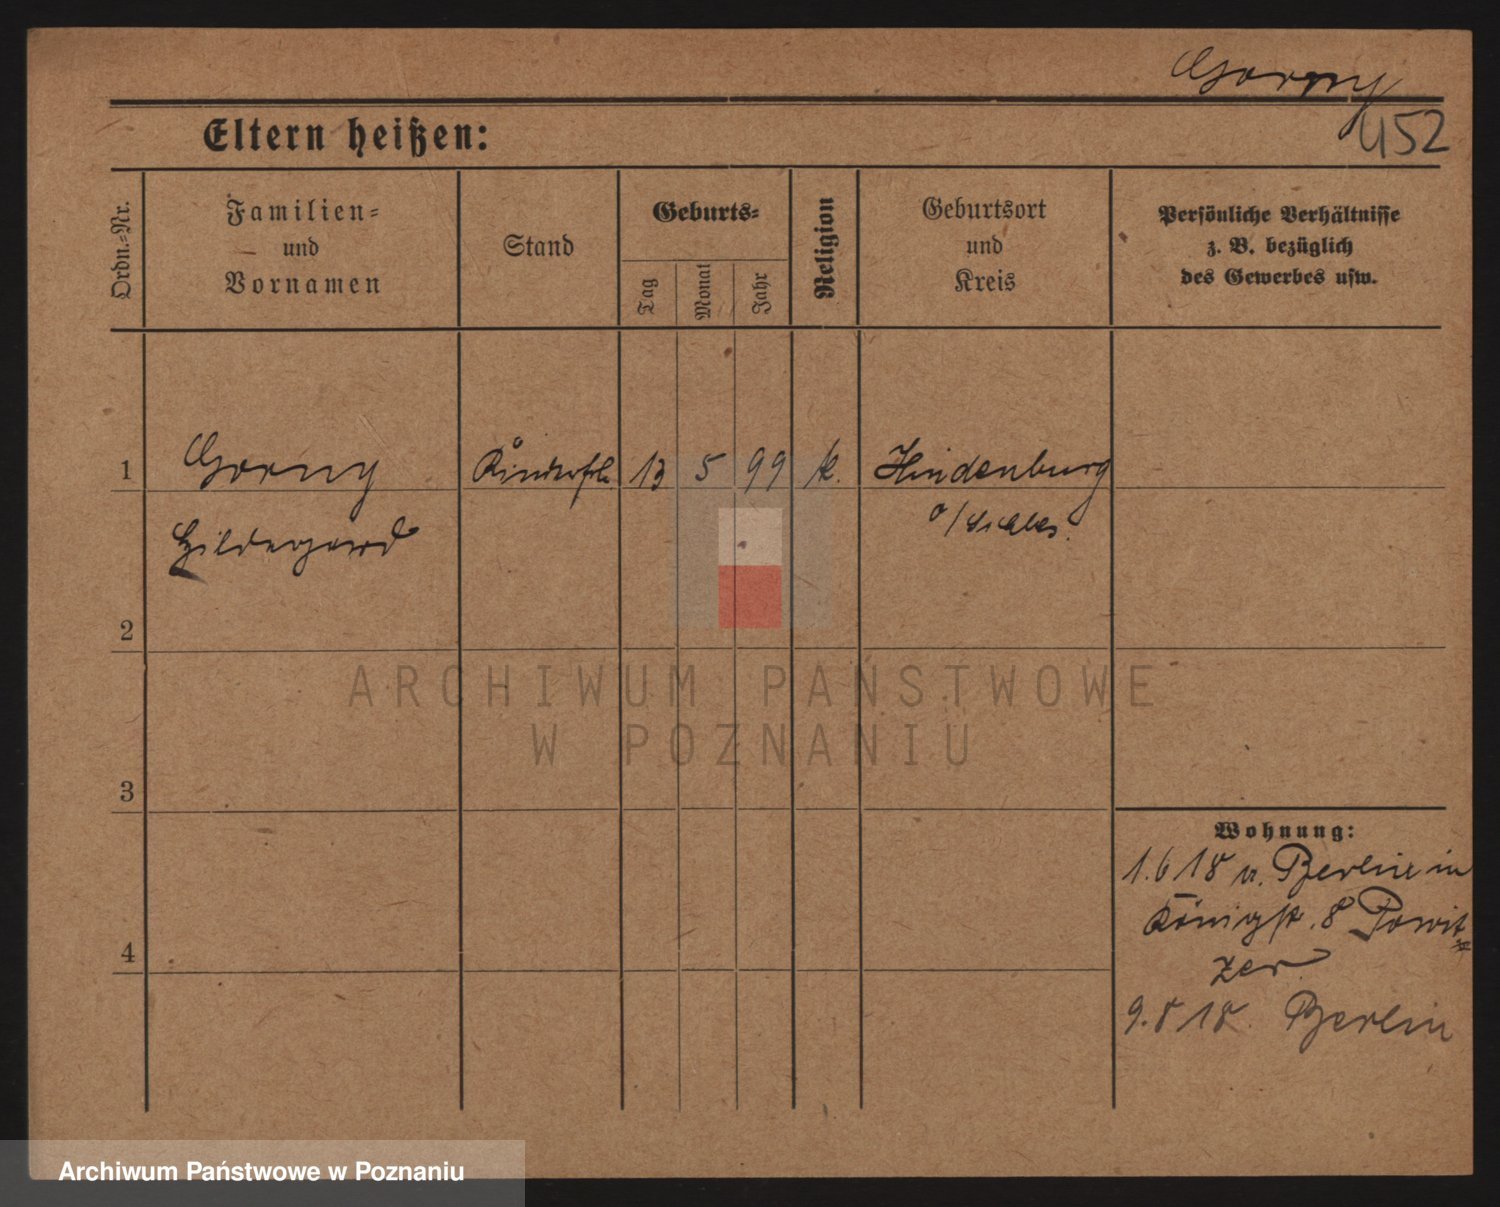 Gorny
452
Eltern heißen:
Ordn.-Nr.
Familien-
und
Vornamen
Stand
Geburts-
Tag
Monat
Jahr
Religion
Geburtsort
und
Kreis
Persönliche Verhältnisse
z. B. bezüglich
des Gewerbes usw.
1 Gorny Kinderfrl. 13 5 99 k. Hindenburg
Hildegard o/Schles.
2
3
4
Wohnung:
1.6 18 v. Berlin in
Königstr. 8 Powit
zer
9.8 18. Berlin
ARCHIWUM PAŃSTWOWE
W POZNANIU
Archiwum Państwowe w Poznaniu